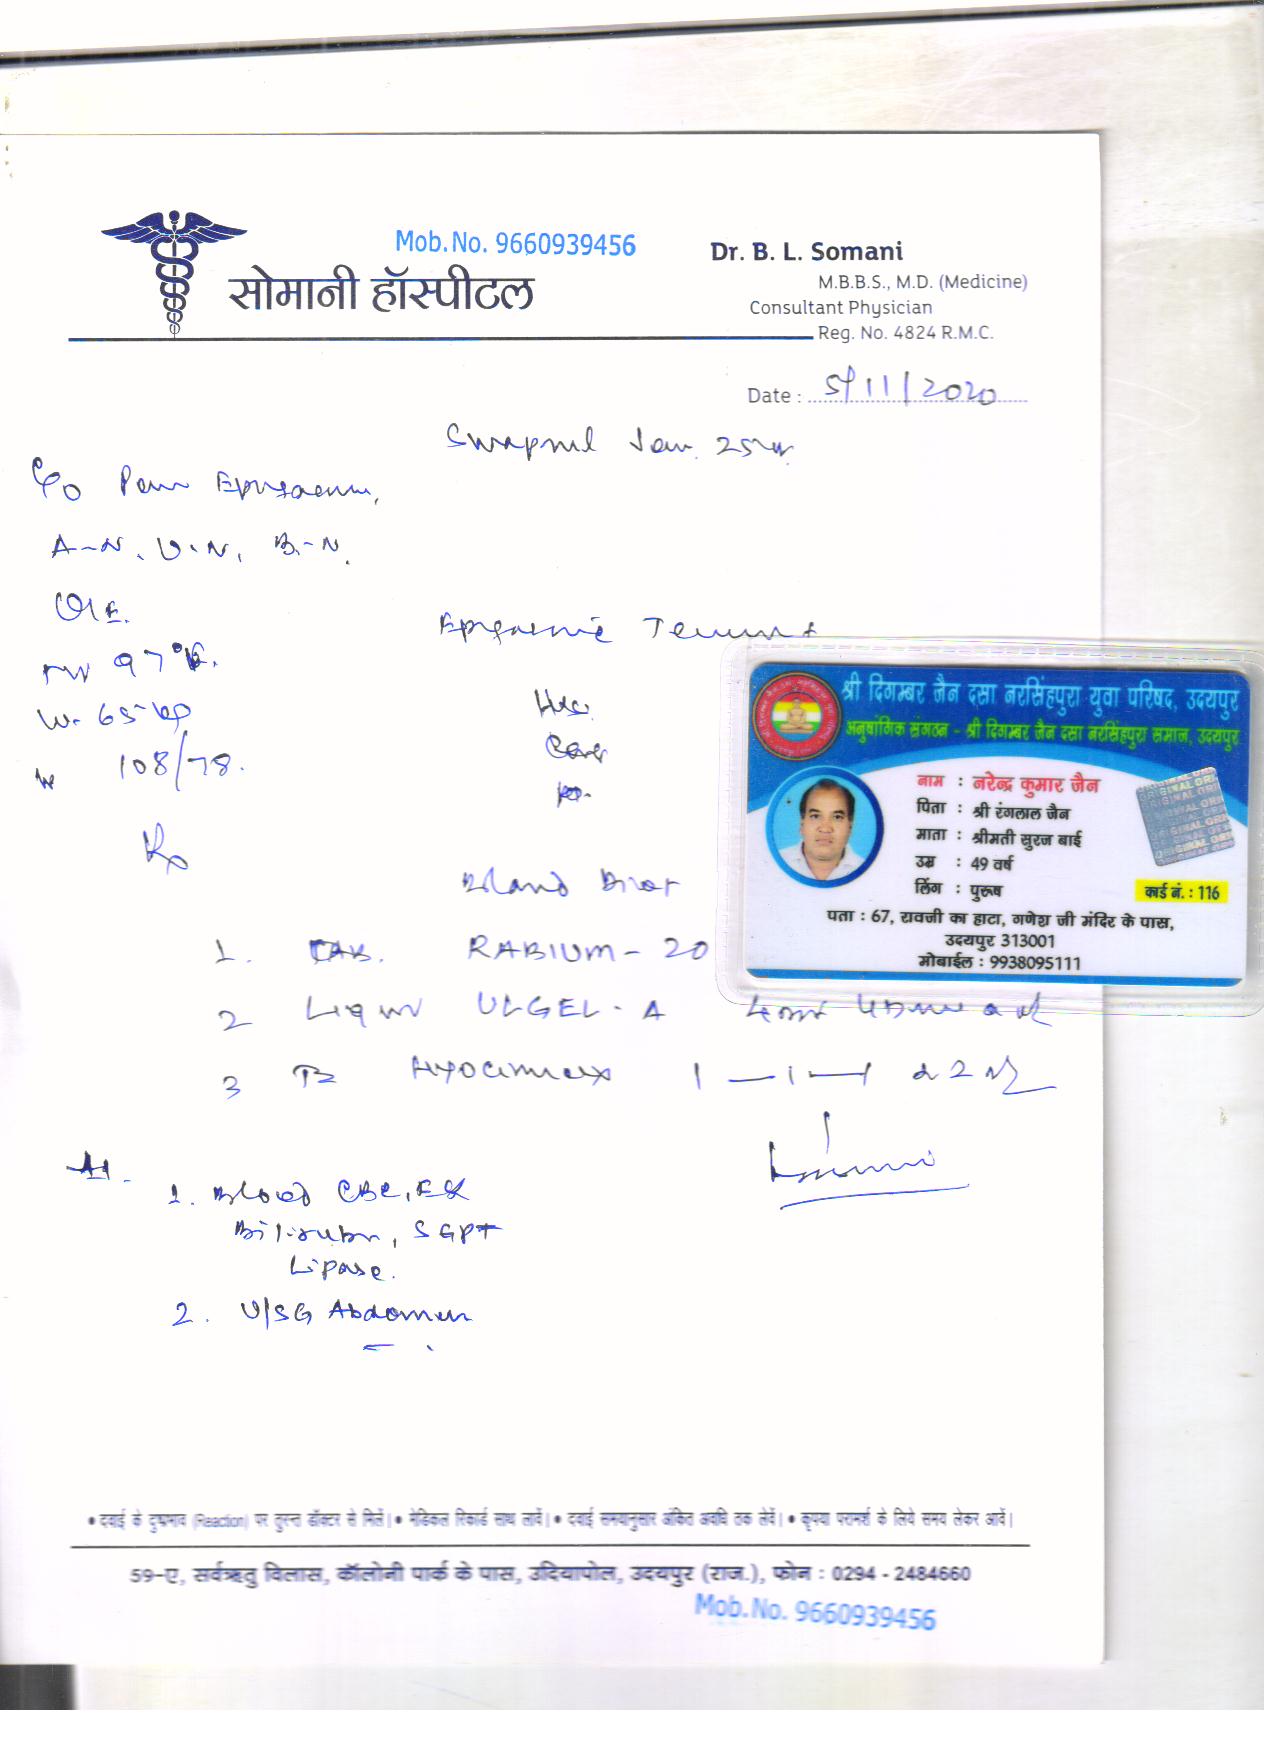 Mob.No. 9660939456
सोमानी हॉस्पीटल
Dr. B. L. Somani
M.B.B.S., M.D. (Medicine)
Consultant Physician
Reg. No. 4824 R.M.C.
Date : 5/11/2020
Swapnil Jain 25
C/O Pain Epigastrium,
A-N, U-N, B-N.
O/E.
97°F.
W. 65 kg
108/78.
Epigastric
Rx
Bland Diet
1. TAB. RABIUM-20
2 Liquid ULGEL-A
3 1-1-1
1. Blood CBC,
Bilirubin, SGPT
Lipase.
2. U/SG Abdomen
श्री दिगम्बर जैन दसा नरसिंहपुरा युवा परिषद, उदयपुर
अनुषांगिक संगठन - श्री दिगम्बर जैन दसा नरसिंहपुरा समाज, उदयपुर
नाम : नरेन्द्र कुमार जैन
पिता : श्री रंगलाल जैन
माता : श्रीमती सुरज बाई
उम्र : 49 वर्ष
लिंग : पुरूष
कार्ड नं. : 116
पता : 67, रावजी का हाटा, गणेश जी मंदिर के पास,
उदयपुर 313001
मोबाईल : 9938095111
• दवाई के दुष्प्रभाव (Reaction) पर तुरन्त डॉक्टर से मिलें। • मेडिकल रिकार्ड साथ लावें। • दवाई समयानुसार अंकित अवधि तक लेवें। • कृपया परामर्श के लिये समय लेकर आवें।
59-ए, सर्वऋतु विलास, कॉलोनी पार्क के पास, उदियापोल, उदयपुर (राज.), फोन : 0294 - 2484660
Mob.No. 9660939456